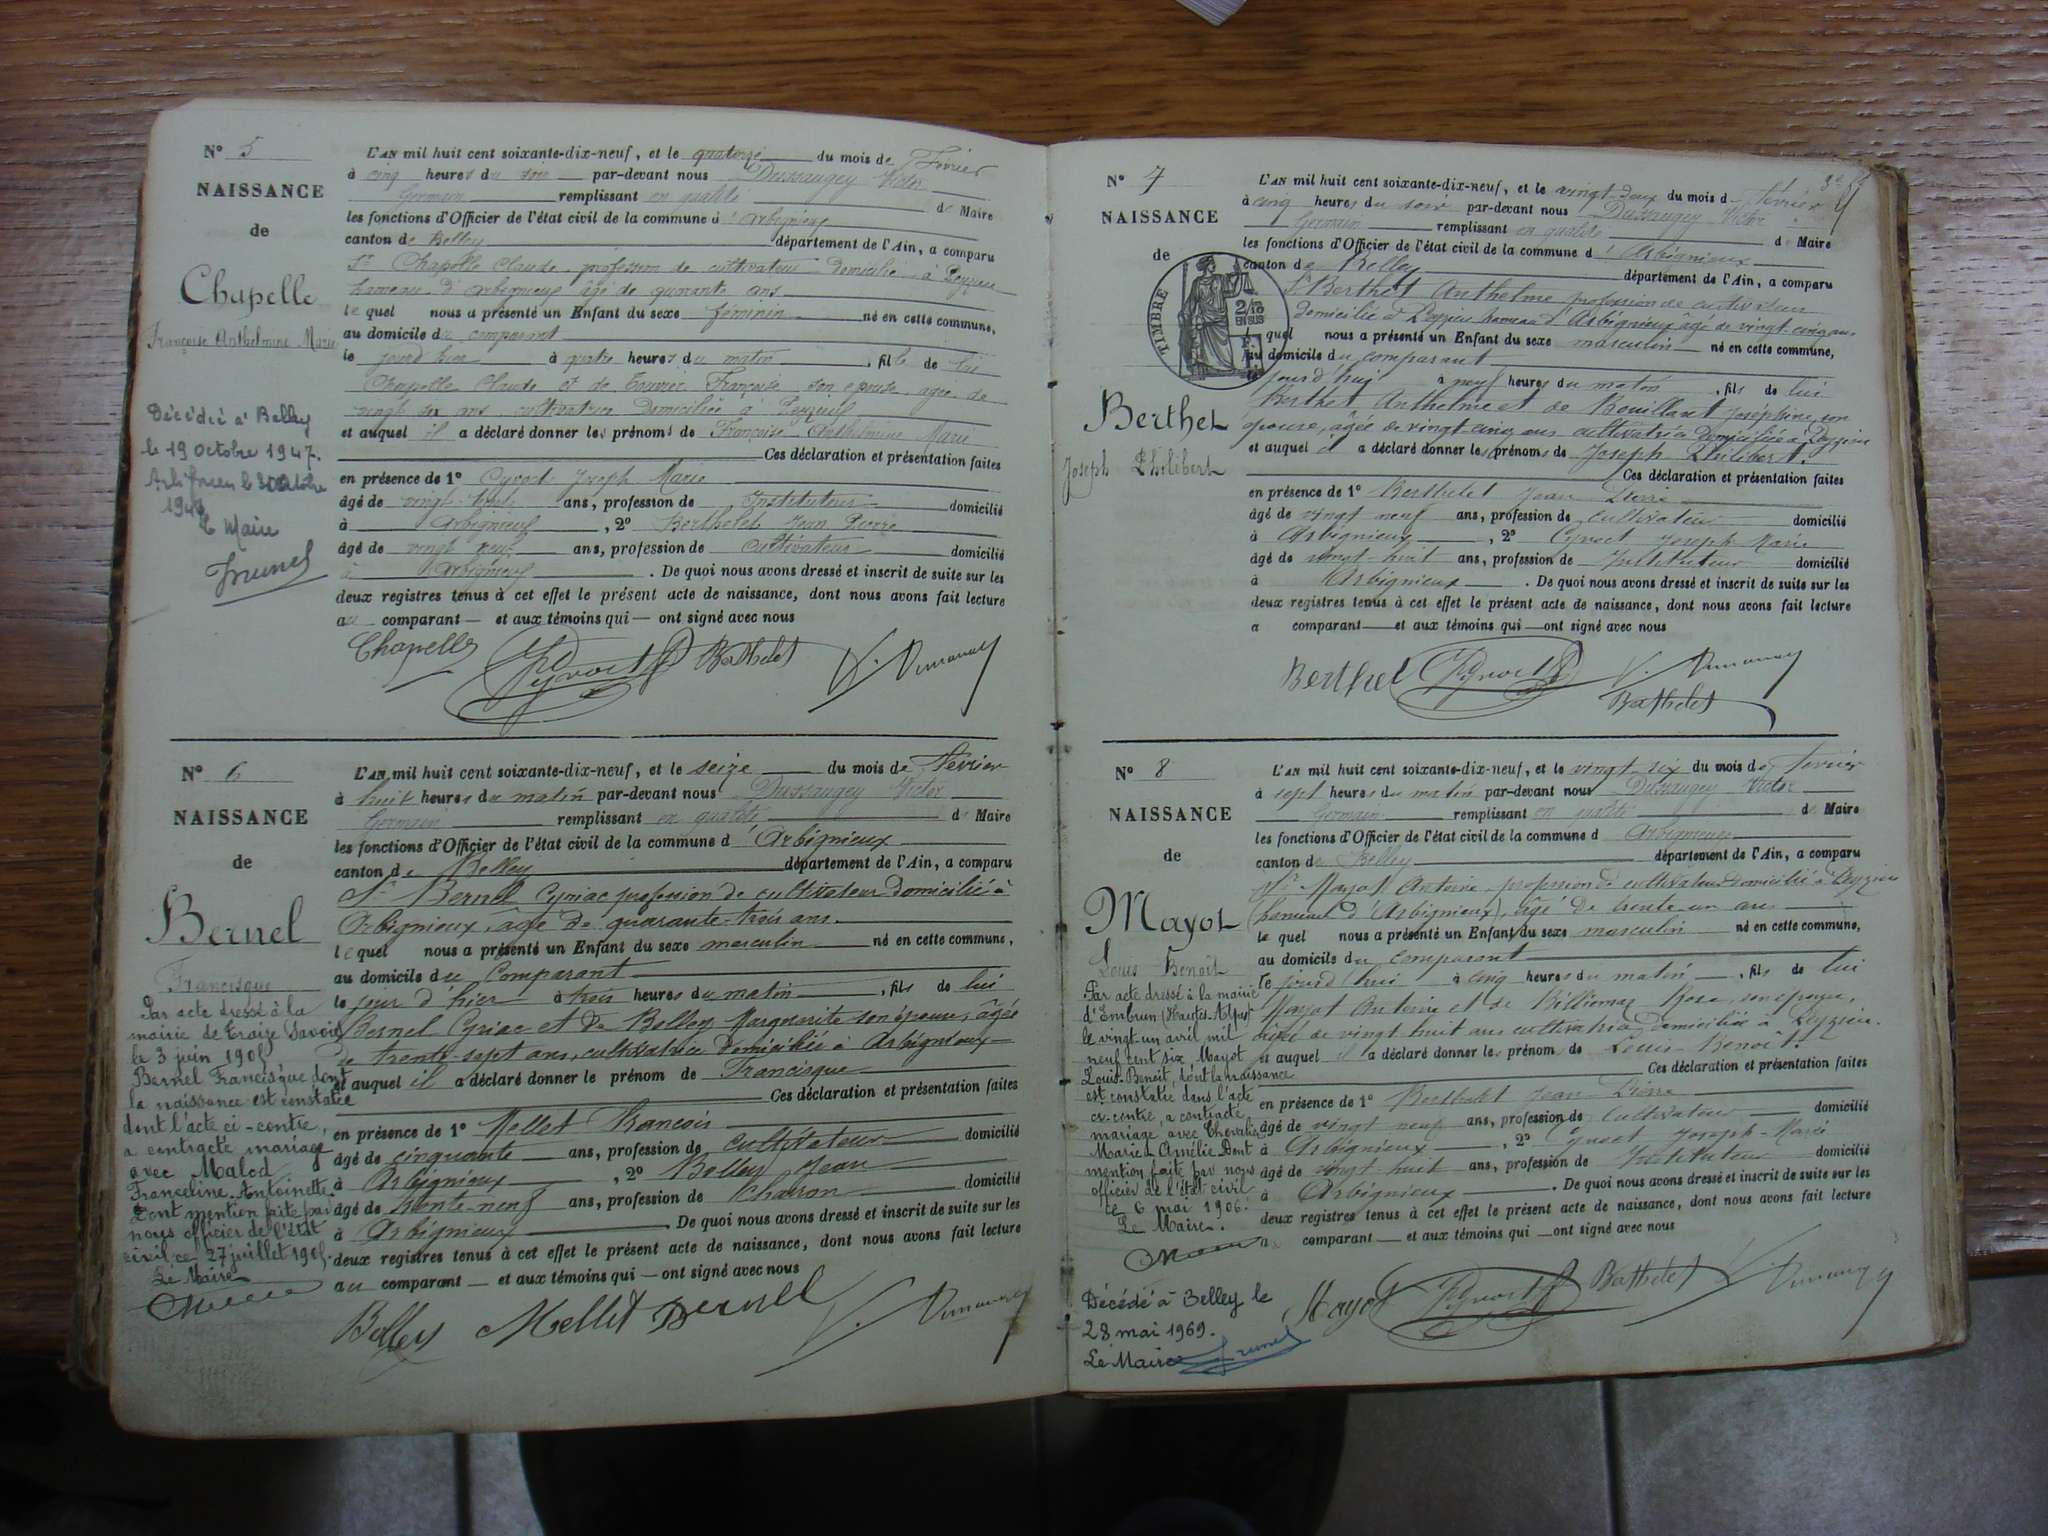 N° 5
NAISSANCE
de
Chapelle
Françoise Anthelmine Marie
Décédée à Belley
le 19 Octobre 1947.
Le Maire
L'AN mil huit cent soixante-dix-neuf, et le quatorze du mois de Février
à cinq heures du soir par-devant nous Dussaugey Victor
Germain remplissant en qualité de Maire
les fonctions d'Officier de l'état civil de la commune d'Arbignieux
canton de Belley département de l'Ain, a comparu
Sr Chapelle Claude, profession de cultivateur domicilié à Peyzieu
hameau d'Arbignieux âgé de quarante ans
lequel nous a présenté un Enfant du sexe féminin né en cette commune,
au domicile du comparant
le jourd'hier à quatre heures du matin, fille de lui
Chapelle Claude et de Françoise, son épouse, âgée de
vingt six ans, cultivatrice domiciliée à Peyzieu
et auquel il a déclaré donner les prénoms de Françoise Anthelmine Marie
Ces déclaration et présentation faites
en présence de 1° Cyvoct Joseph Marie
âgé de vingt huit ans, profession de Instituteur domicilié
à Arbignieux, 2° Berthelet Jean Pierre
âgé de vingt neuf ans, profession de cultivateur domicilié
à Arbignieux. De quoi nous avons dressé et inscrit de suite sur les
deux registres tenus à cet effet le présent acte de naissance, dont nous avons fait lecture
au comparant et aux témoins qui ont signé avec nous
Chapelle Cyvoct Berthelet V. Dussaugey
N° 6
NAISSANCE
de
Bernel
Francisque
Par acte dressé à la
mairie de Traize (Savoie)
le 3 juin 1905,
Bernel Francisque dont
la naissance est constatée
dont l'acte ci-contre,
a contracté mariage
avec Malod
Franceline Antoinette.
Dont mention faite par
nous officier de l'état
civil ce 27 juillet 1905.
Le Maire
L'AN mil huit cent soixante-dix-neuf, et le seize du mois de Février
à huit heures du matin par-devant nous Dussaugey Victor
Germain remplissant en qualité de Maire
les fonctions d'Officier de l'état civil de la commune d'Arbignieux
canton de Belley département de l'Ain, a comparu
Sr Bernel Cyriac profession de cultivateur domicilié à
Arbignieux, âgé de quarante-trois ans.
lequel nous a présenté un Enfant du sexe masculin né en cette commune,
au domicile du Comparant
le jour d'hier à trois heures du matin, fils de lui
Bernel Cyriac et de Belley Marguerite son épouse, âgée
de trente-sept ans, cultivatrice domiciliée à Arbignieux
et auquel il a déclaré donner le prénom de Francisque
Ces déclaration et présentation faites
en présence de 1° Mellet François
âgé de cinquante ans, profession de cultivateur domicilié
à Arbignieux, 2° Belley Jean
âgé de trente-neuf ans, profession de Charron domicilié
à Arbignieux. De quoi nous avons dressé et inscrit de suite sur les
deux registres tenus à cet effet le présent acte de naissance, dont nous avons fait lecture
au comparant et aux témoins qui ont signé avec nous
Belley Mellet Bernel V. Dussaugey
N° 7
NAISSANCE
de
TIMBRE
2/10
EN SUS
Berthet
Joseph Philibert
L'AN mil huit cent soixante-dix-neuf, et le vingt-deux du mois de Février
à cinq heures du soir par-devant nous Dussaugey Victor
Germain remplissant en qualité de Maire
les fonctions d'Officier de l'état civil de la commune d'Arbignieux
canton de Belley département de l'Ain, a comparu
Sr Berthet Anthelme profession de cultivateur
domicilié à Peyzieu hameau d'Arbignieux âgé de vingt cinq ans
lequel nous a présenté un Enfant du sexe masculin né en cette commune,
au domicile du comparant
le jourd'hui à neuf heures du matin, fils de lui
Berthet Anthelme et de Bouillant Joséphine, son
épouse, âgée de vingt cinq ans cultivatrice domiciliée à Peyzieu
et auquel il a déclaré donner les prénoms de Joseph Philibert.
Ces déclaration et présentation faites
en présence de 1° Berthelet Jean Pierre
âgé de vingt neuf ans, profession de cultivateur domicilié
à Arbignieux, 2° Cyvoct Joseph-Marie
âgé de vingt-huit ans, profession de Instituteur domicilié
à Arbignieux. De quoi nous avons dressé et inscrit de suite sur les
deux registres tenus à cet effet le présent acte de naissance, dont nous avons fait lecture
a comparant et aux témoins qui ont signé avec nous
Berthet Cyvoct V. Dussaugey
Berthelet
N° 8
NAISSANCE
de
Mayot
Louis Benoît
Par acte dressé à la mairie
d'Embrun (Hautes-Alpes)
le vingt-un avril mil
neuf cent six Mayot
Louis-Benoît, dont la naissance
est constatée dans l'acte
ci-contre, a contracté
mariage avec Chevalier
Marie Amélie. Dont
mention faite par nous
officier de l'état civil
ce 6 mai 1906.
Le Maire.
Décédé à Belley le
28 mai 1969.
Le Maire
L'AN mil huit cent soixante-dix-neuf, et le vingt six du mois de février
à sept heures du matin par-devant nous Dussaugey Victor
Germain remplissant en qualité de Maire
les fonctions d'Officier de l'état civil de la commune d Arbignieux
canton de Belley département de l'Ain, a comparu
Sr Mayot Antoine, profession de cultivateur domicilié à Peyzieu
(hameau d'Arbignieux), âgé de trente un ans
lequel nous a présenté un Enfant du sexe masculin né en cette commune,
au domicile du comparant
le jourd'hui à cinq heures du matin, fils de lui
Mayot Antoine et de Billiemaz Rose, son épouse,
âgée de vingt huit ans cultivatrice, domiciliée à Peyzieu.
et auquel il a déclaré donner les prénoms de Louis-Benoît.
Ces déclaration et présentation faites
en présence de 1° Berthelet Jean-Pierre
âgé de vingt neuf ans, profession de cultivateur domicilié
à Arbignieux, 2° Cyvoct Joseph-Marie
âgé de vingt-huit ans, profession de Instituteur domicilié
à Arbignieux. De quoi nous avons dressé et inscrit de suite sur les
deux registres tenus à cet effet le présent acte de naissance, dont nous avons fait lecture
au comparant et aux témoins qui ont signé avec nous
Mayot Cyvoct Berthelet V. Dussaugey